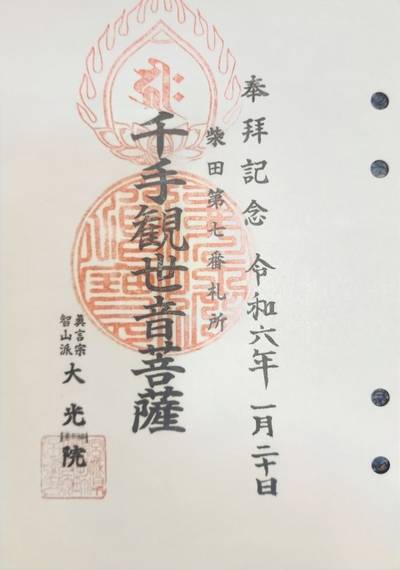 奉拝記念 令和六年 一月二十日
柴田第七番札所
千手観世音菩薩
眞言宗
智山派
大光院